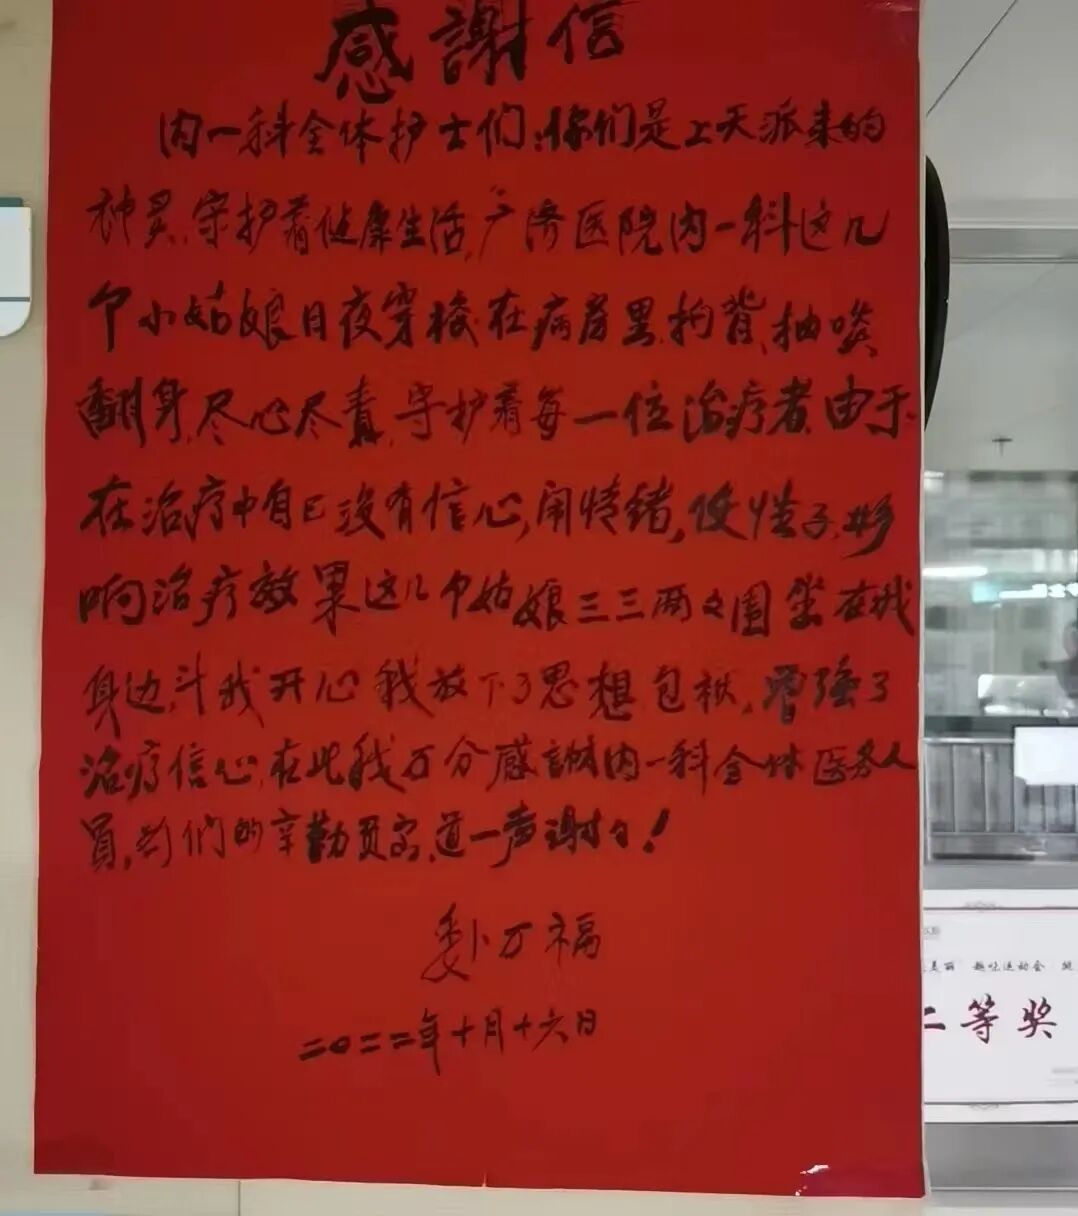 感謝信
内一科全体护士们:你们是上天派来的
神灵,守护着健康生活,广济医院内一科这几
个小姑娘日夜穿梭在病房里,拘背,抽痰
翻身,尽心尽责,守护着每一位治疗者,由于
在治疗中自己没有信心,闹情绪,使性子,影
响治疗效果这几个姑娘三三两々围坐在我
身边,斗我开心我放下了思想包袱,增强了
治疗信心,在此我万分感謝内一科全体医务人
员,对们的辛勤贡献,道一声谢々!
万福
二〇二二年十月十六日
美丽 趣味运动会
二等奖